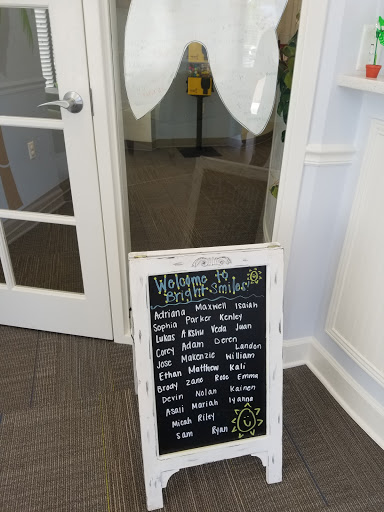 Welcome to
Bright Smiles
Adriana Maxwell Isaiah
Sophia Parker Kenley
Lukas Akshu Veda Juan
Corey Adam Deren
Jose Makenzie William Landon
Ethan Matthew Kali
Brody Zane Rose Emma
Devin Nolan Kainen
Asali Mariah Iyanna
Micah Riley
Sam Ryan